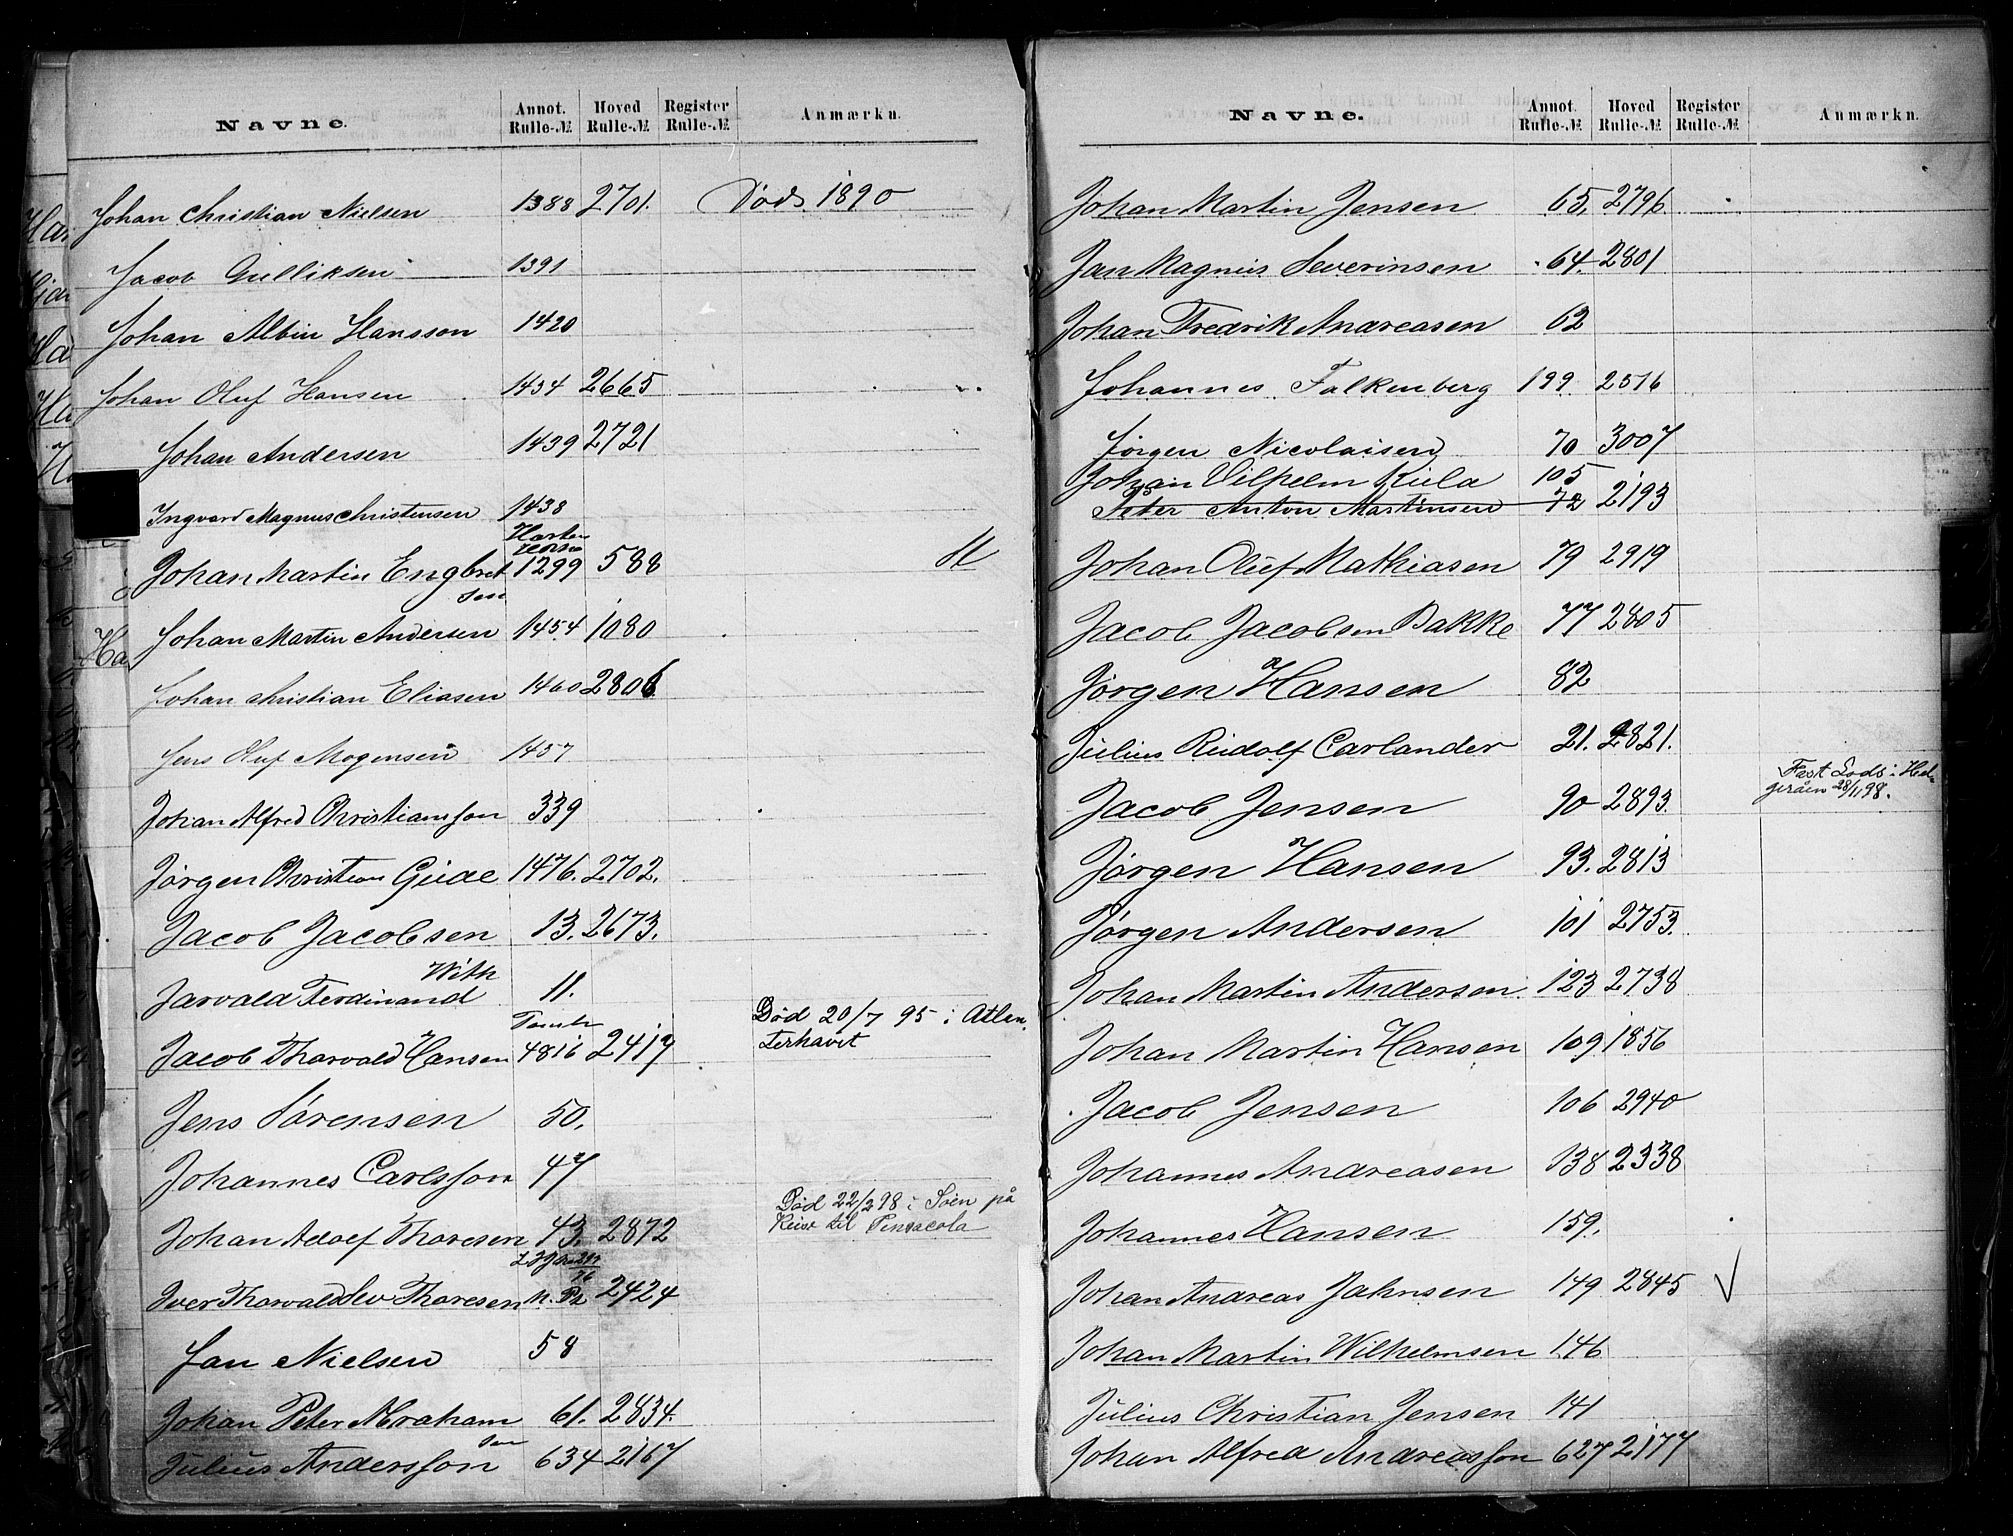 Navne. Annot. Rulle-№ Hoved Rulle-№ Register Rulle-№ Anmærkn.
Johan Christian Nielsen 1388 2701. Død 1890
Jacob Gulliksen 1391
Johan Albin Hansson 1420
Johan Oluf Hansen 1434 2665
Johan Andersen 1439 2721
Ingvard Magnus Christensen 1438
Johan Martin Engbret 1299 588
sen
Johan Martin Andersen 1454 1080
Johan Christian Eliasen 1460 2806
Jens Oluf Mogensen 1457
Johan Alfred Christiansson 339
Jørgen Christian Gude 1476. 2702.
Jacob Jacobsen 13. 2673.
With
Jarvald Ferdinand 11.
Jacob Thorvald Hansen 4816 2417 Død 20/7 95 i Atlan
terhavet
Jens Sørensen 50.
Johannes Carlsson 47
Johan Adolf Thoresen 43. 2872 Død 22/2 98 i Søen på
Reise til Pensacola
Iver Thorvald Sev Thoresen 2424
Jan Nielsen 58
Johan Peter Abraham 61. 2834.
sen
Julius Andersson 634 2167
Navne. Annot. Rulle-№ Hoved Rulle-№ Register Rulle-№ Anmærkn.
Johan Martin Jensen 65. 2796
Jan Magnus Severinsen 64. 2801
Johan Fredrik Andreasen 62
Johannes Falkenberg 199. 2516
Jørgen Nicolaisen 70 3007
Johan Vilhelm Kula 105
Peter Anton Martinsen 72 2193
Johan Oluf Mathiasen 79 2919
Jacob Jacobsen Bakke 77 2805
Jørgen Hansen 82
Julius Rudolf Carlander 21. 2821.
Jacob Jensen 90 2893. Fast Lods i
28/11 98.
Jørgen Hansen 93. 2813
Jørgen Andersen 101 2753.
Johan Martin Andersen 123 2738
Johan Martin Hansen 109 1856
Jacob Jensen 106 2940
Johannes Andreasen 138 2338
Johannes Hansen 159.
Johan Andreas Jahnsen 149 2845 ✓
Johan Martin Wilhelmsen 146
Julius Christian Jensen 141
Johan Alfred Andreasson 627 2177